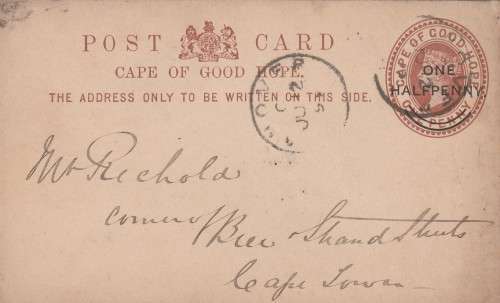 POST CARD
CAPE OF GOOD HOPE.
THE ADDRESS ONLY TO BE WRITTEN ON THIS SIDE.
CAPE OF GOOD HOPE
ONE
HALFPENNY.
ONE PENNY
JU 2
Mr Reichold
corner of
Bree & Strand Streets
Cape Town